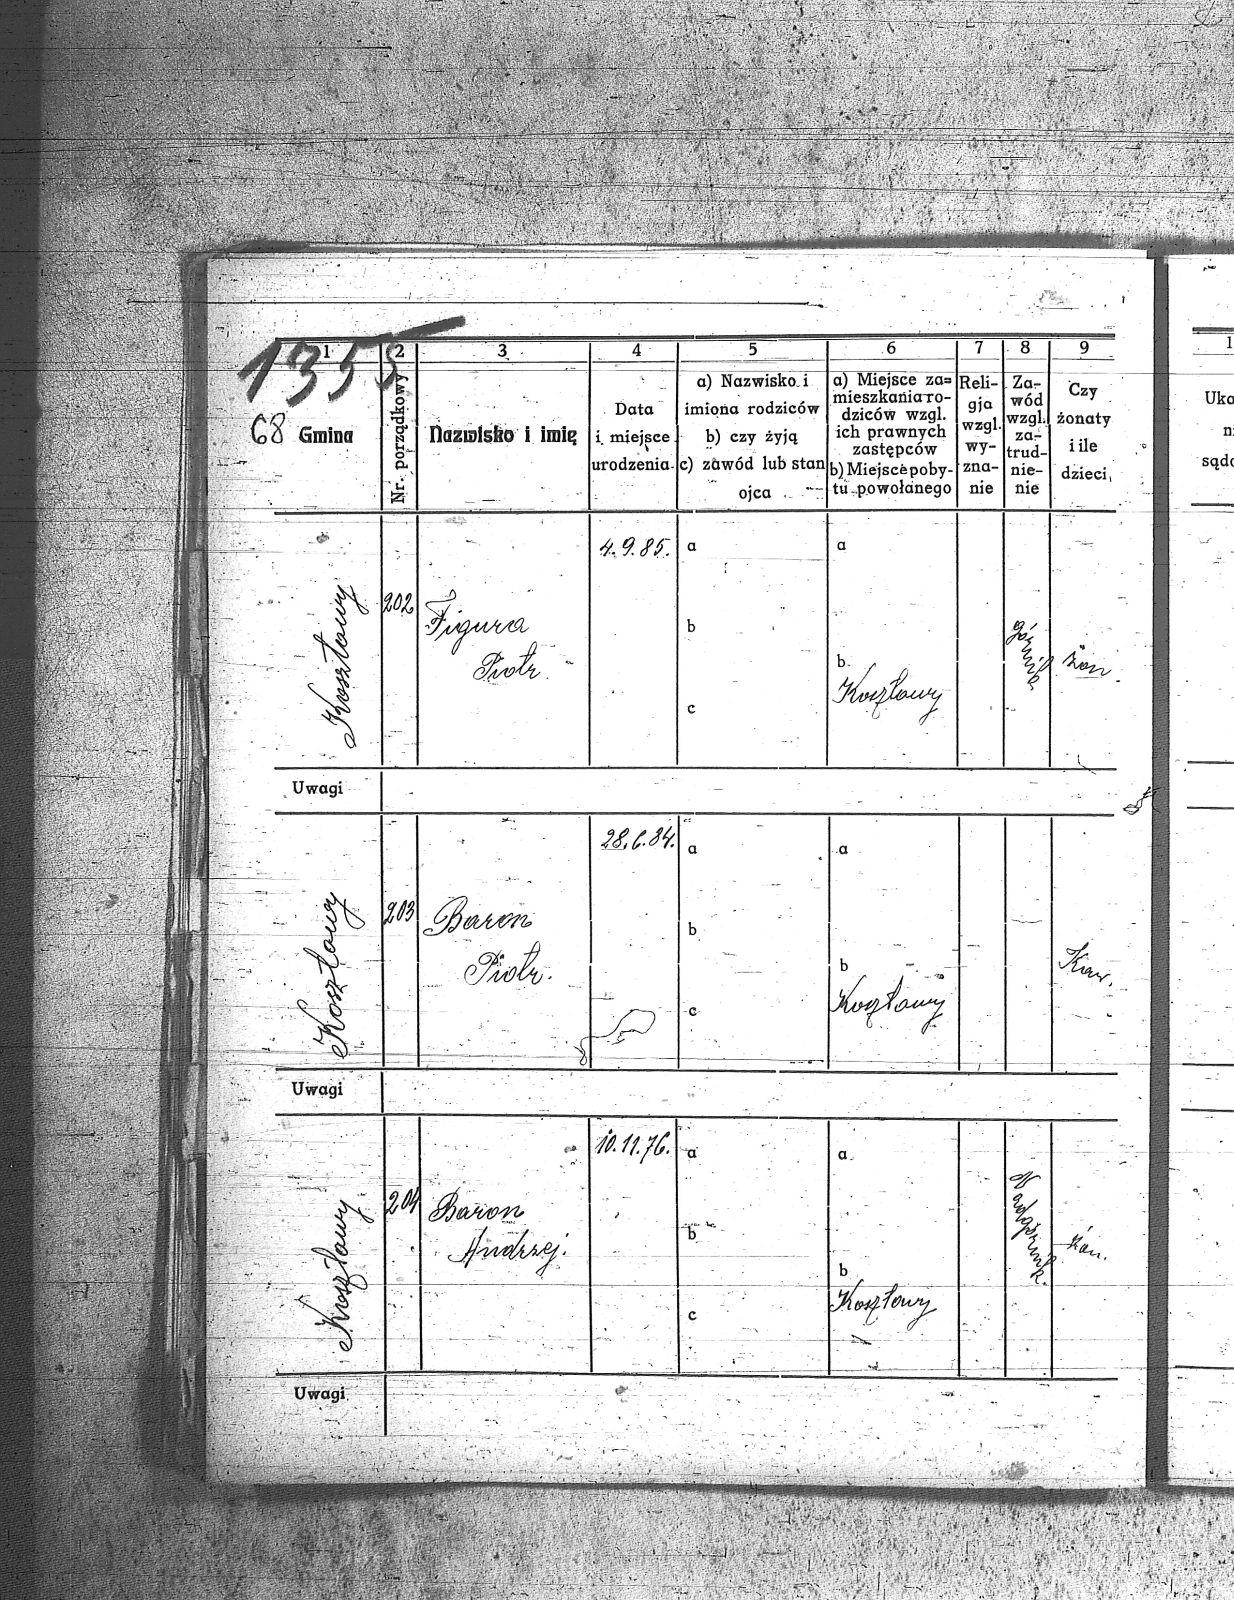 1355
68
1 2 3 4 5 6 7 8 9
Gmina
Nr. porządkowy
Nazwisko i imię
Data
i miejsce
urodzenia
a) Nazwisko i
imiona rodziców
b) czy żyją
c) zawód lub stan
ojca
a) Miejsce za=
mieszkania ro-
dziców wzgl.
ich prawnych
zastępców
b) Miejsce poby-
tu powołanego
Reli-
gja
wzgl.
wy-
zna-
nie
Za-
wód
wzgl.
za-
trud-
nie-
nie
Czy
żonaty
i ile
dzieci
1
Uka
Kosztowy
202
Figura
Piotr
4.9.85.
a
b
c
a
b
Kosztowy
górnik
żon.
Uwagi
Kosztowy
203
Baron
Piotr.
28.6.84.
a
b
c
a
b
Kosztowy
Kaw.
Uwagi
Kosztowy
204
Baron
Andrzej.
10.11.76.
a
b
c
a
b
Kosztowy
Nadgórnik.
żon.
Uwagi